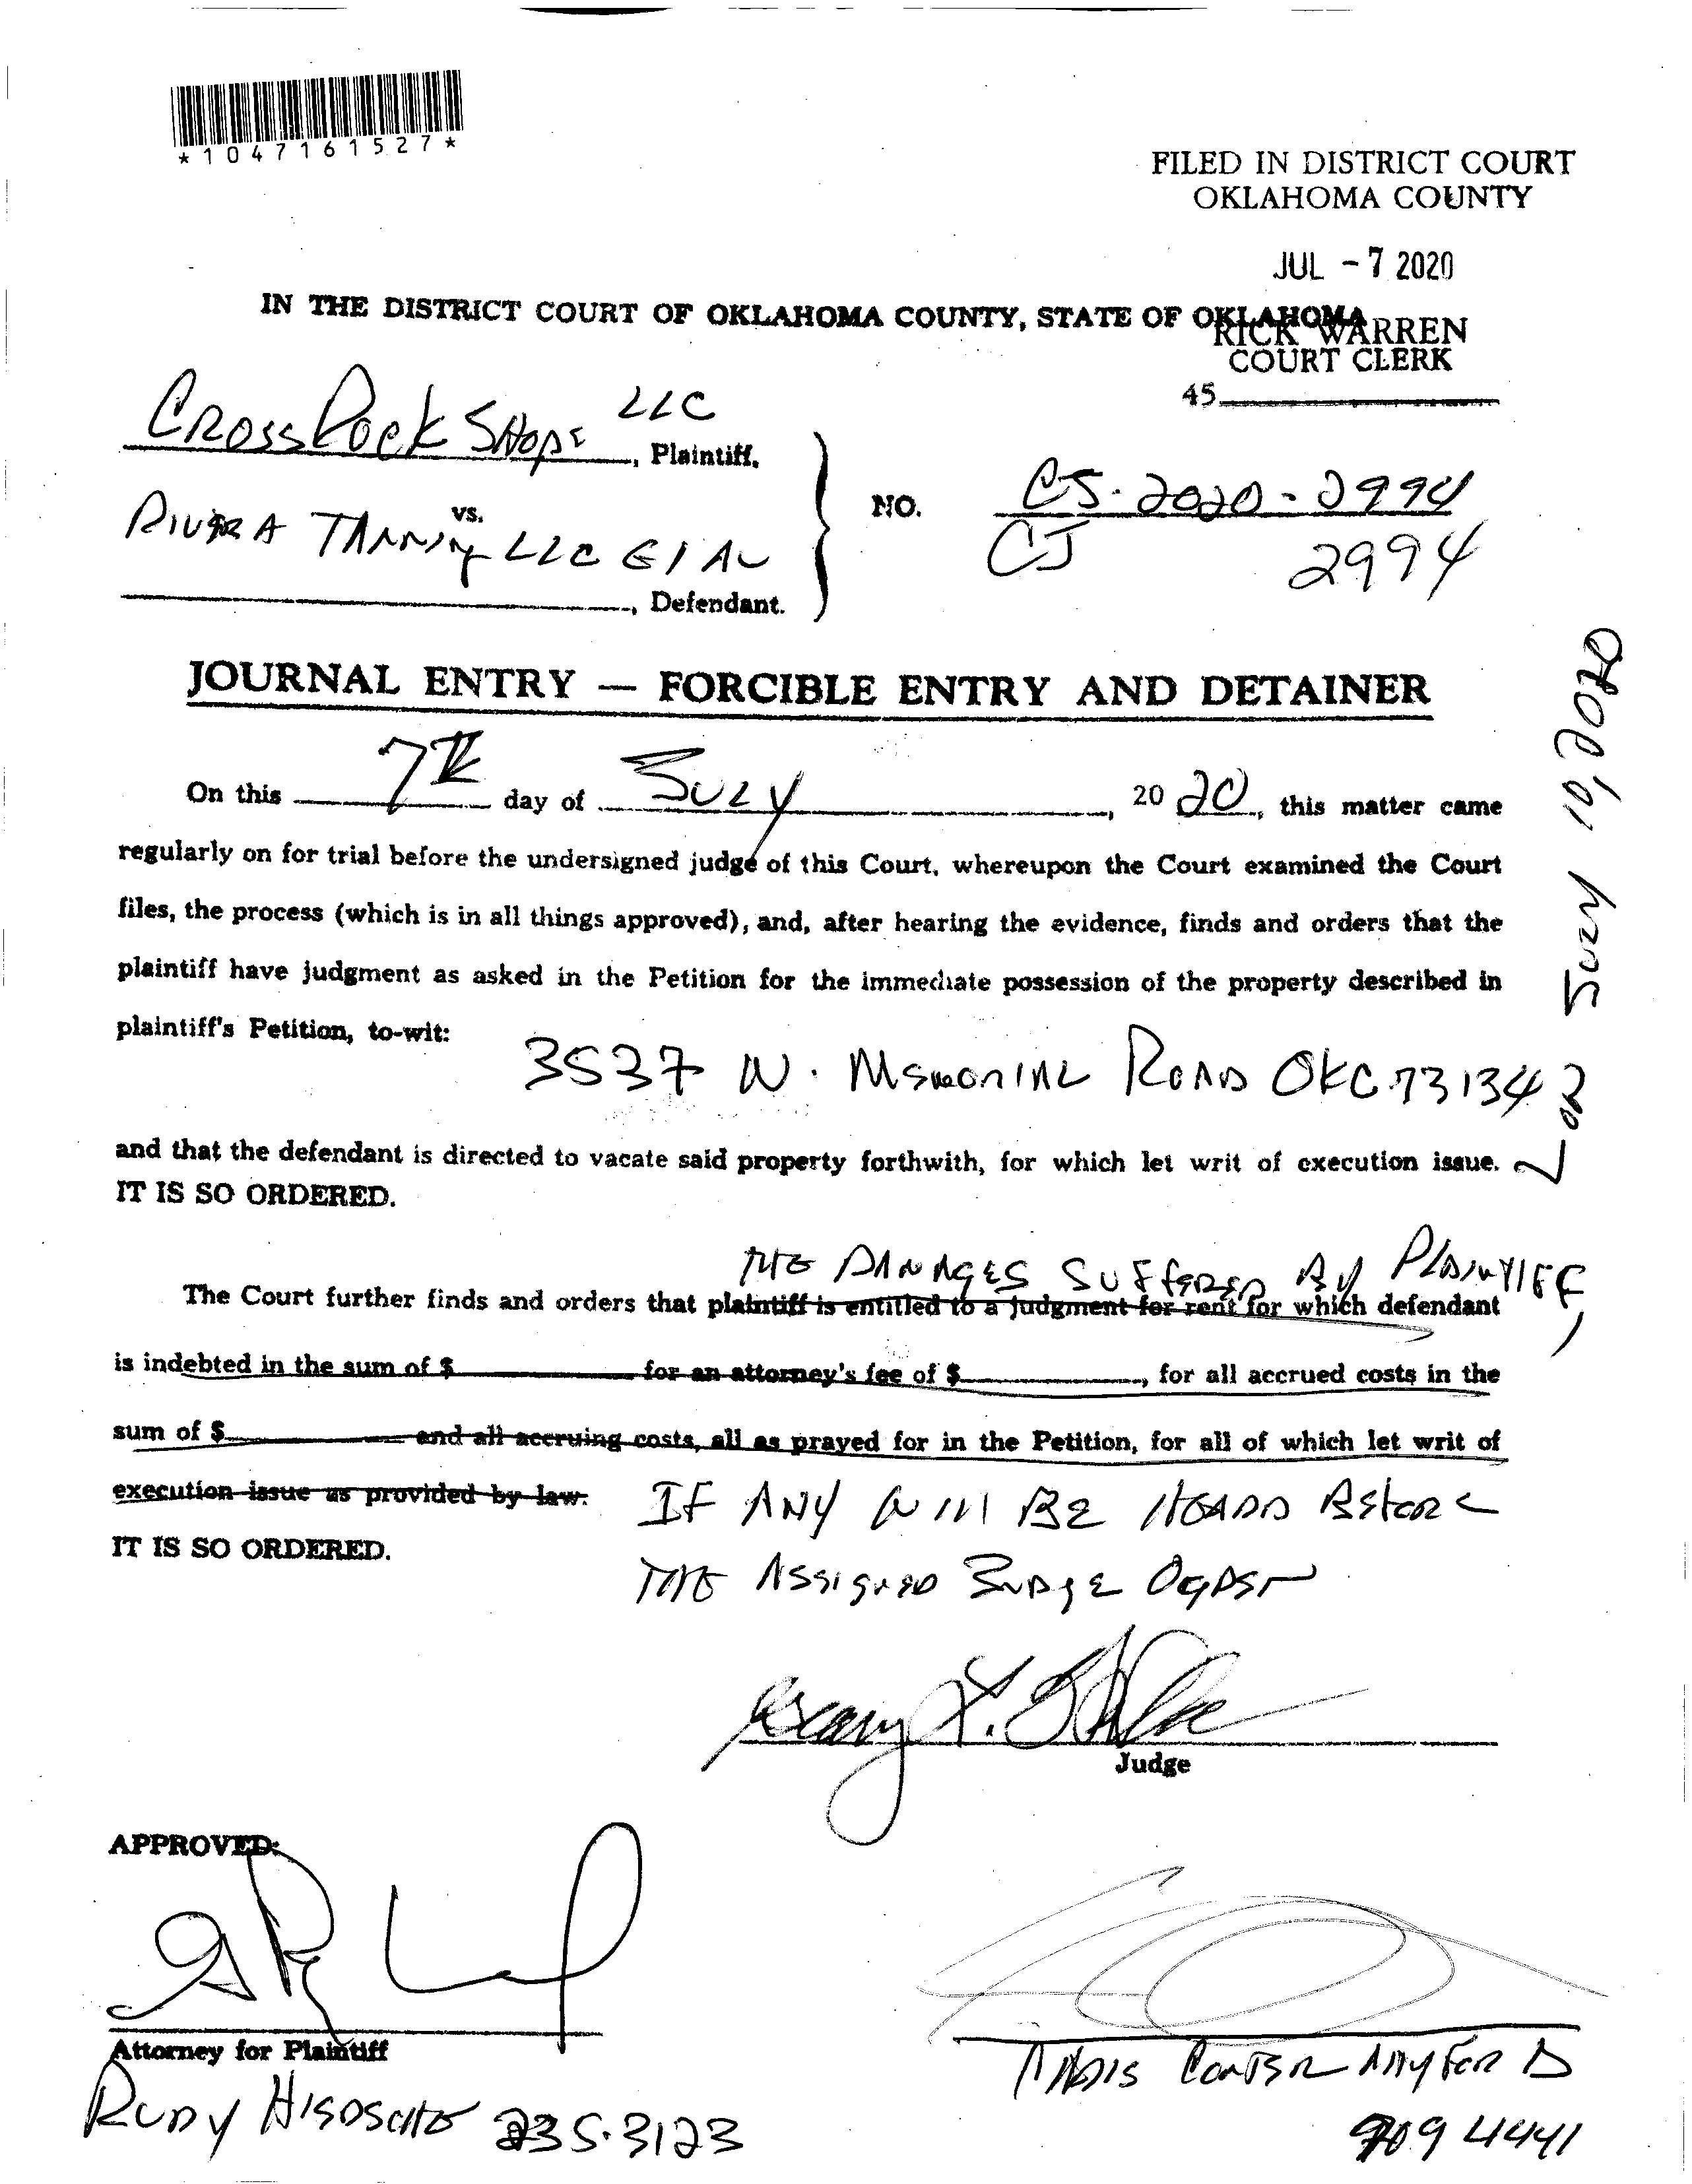 *1047161527*
FILED IN DISTRICT COURT
OKLAHOMA COUNTY
JUL - 7 2020
IN THE DISTRICT COURT OF OKLAHOMA COUNTY, STATE OF OKLAHOMA
RICK WARREN
COURT CLERK
45
CROSS ROCK SHOPS LLC
, Plaintiff,
vs.
RIVERA TANNING LLC ET AL
, Defendant.
NO. CJ-2020-2994
CJ 2994
JOURNAL ENTRY — FORCIBLE ENTRY AND DETAINER
On this 7TH day of JULY, 2020, this matter came
regularly on for trial before the undersigned judge of this Court, whereupon the Court examined the Court
files, the process (which is in all things approved), and, after hearing the evidence, finds and orders that the
plaintiff have judgment as asked in the Petition for the immediate possession of the property described in
plaintiff's Petition, to-wit:
3537 W. MEMORIAL ROAD OKC 73134
and that the defendant is directed to vacate said property forthwith, for which let writ of execution issue.
JULY 10, 2020
IT IS SO ORDERED.
THE DAMAGES SUFFERED BY PLAINTIFF,
The Court further finds and orders that plaintiff is entitled to a judgment for rent for which defendant
is indebted in the sum of $ for an attorney's fee of $, for all accrued costs in the
sum of $ and all accruing costs, all as prayed for in the Petition, for all of which let writ of
execution issue as provided by law.
IF ANY WILL BE HEARD BEFORE
IT IS SO ORDERED.
THE ASSIGNED JUDGE OGDEN
Judge
APPROVED:
Attorney for Plaintiff
RUDY 235-3123
ATTY FOR D
709 4441